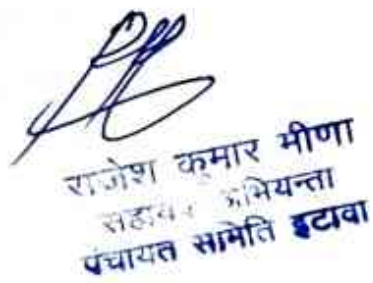 राजेश कुमार मीणा
सहायक अभियन्ता
पंचायत समिति इटावा